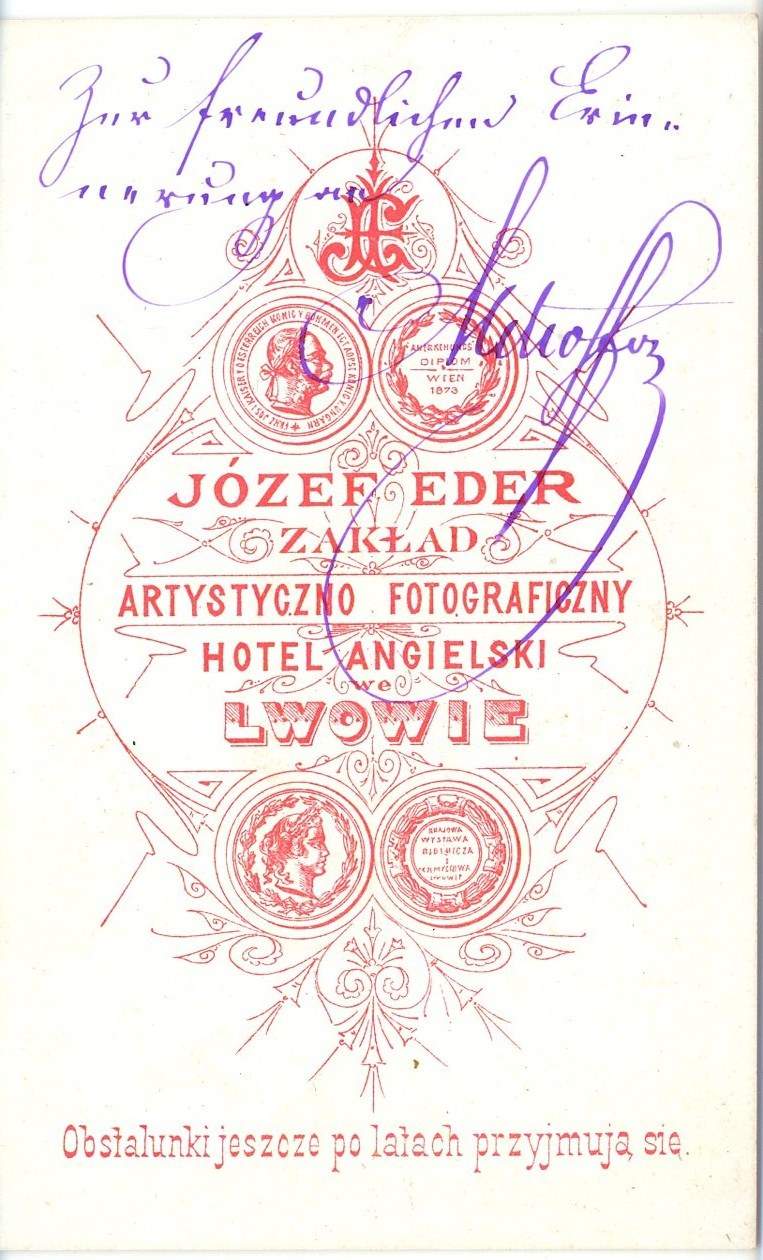 Zur freundlichen Erin-
nerung an
JE
FRANZ JOS. I KAISER V. OESTERREICH KOENIG V. BOEHMEN ETC. APOST. KOENIG V. UNGARN
ANERKENUNGS
DIPLOM
WIEN
1873
JÓZEF EDER
ZAKŁAD
ARTYSTYCZNO FOTOGRAFICZNY
HOTEL ANGIELSKI
we
LWOWIE
KRAJOWA
WYSTAWA
ROLNICZA
I
PRZEMYSŁOWA
LWOWIE
Obstalunki jeszcze po latach przyjmują się.